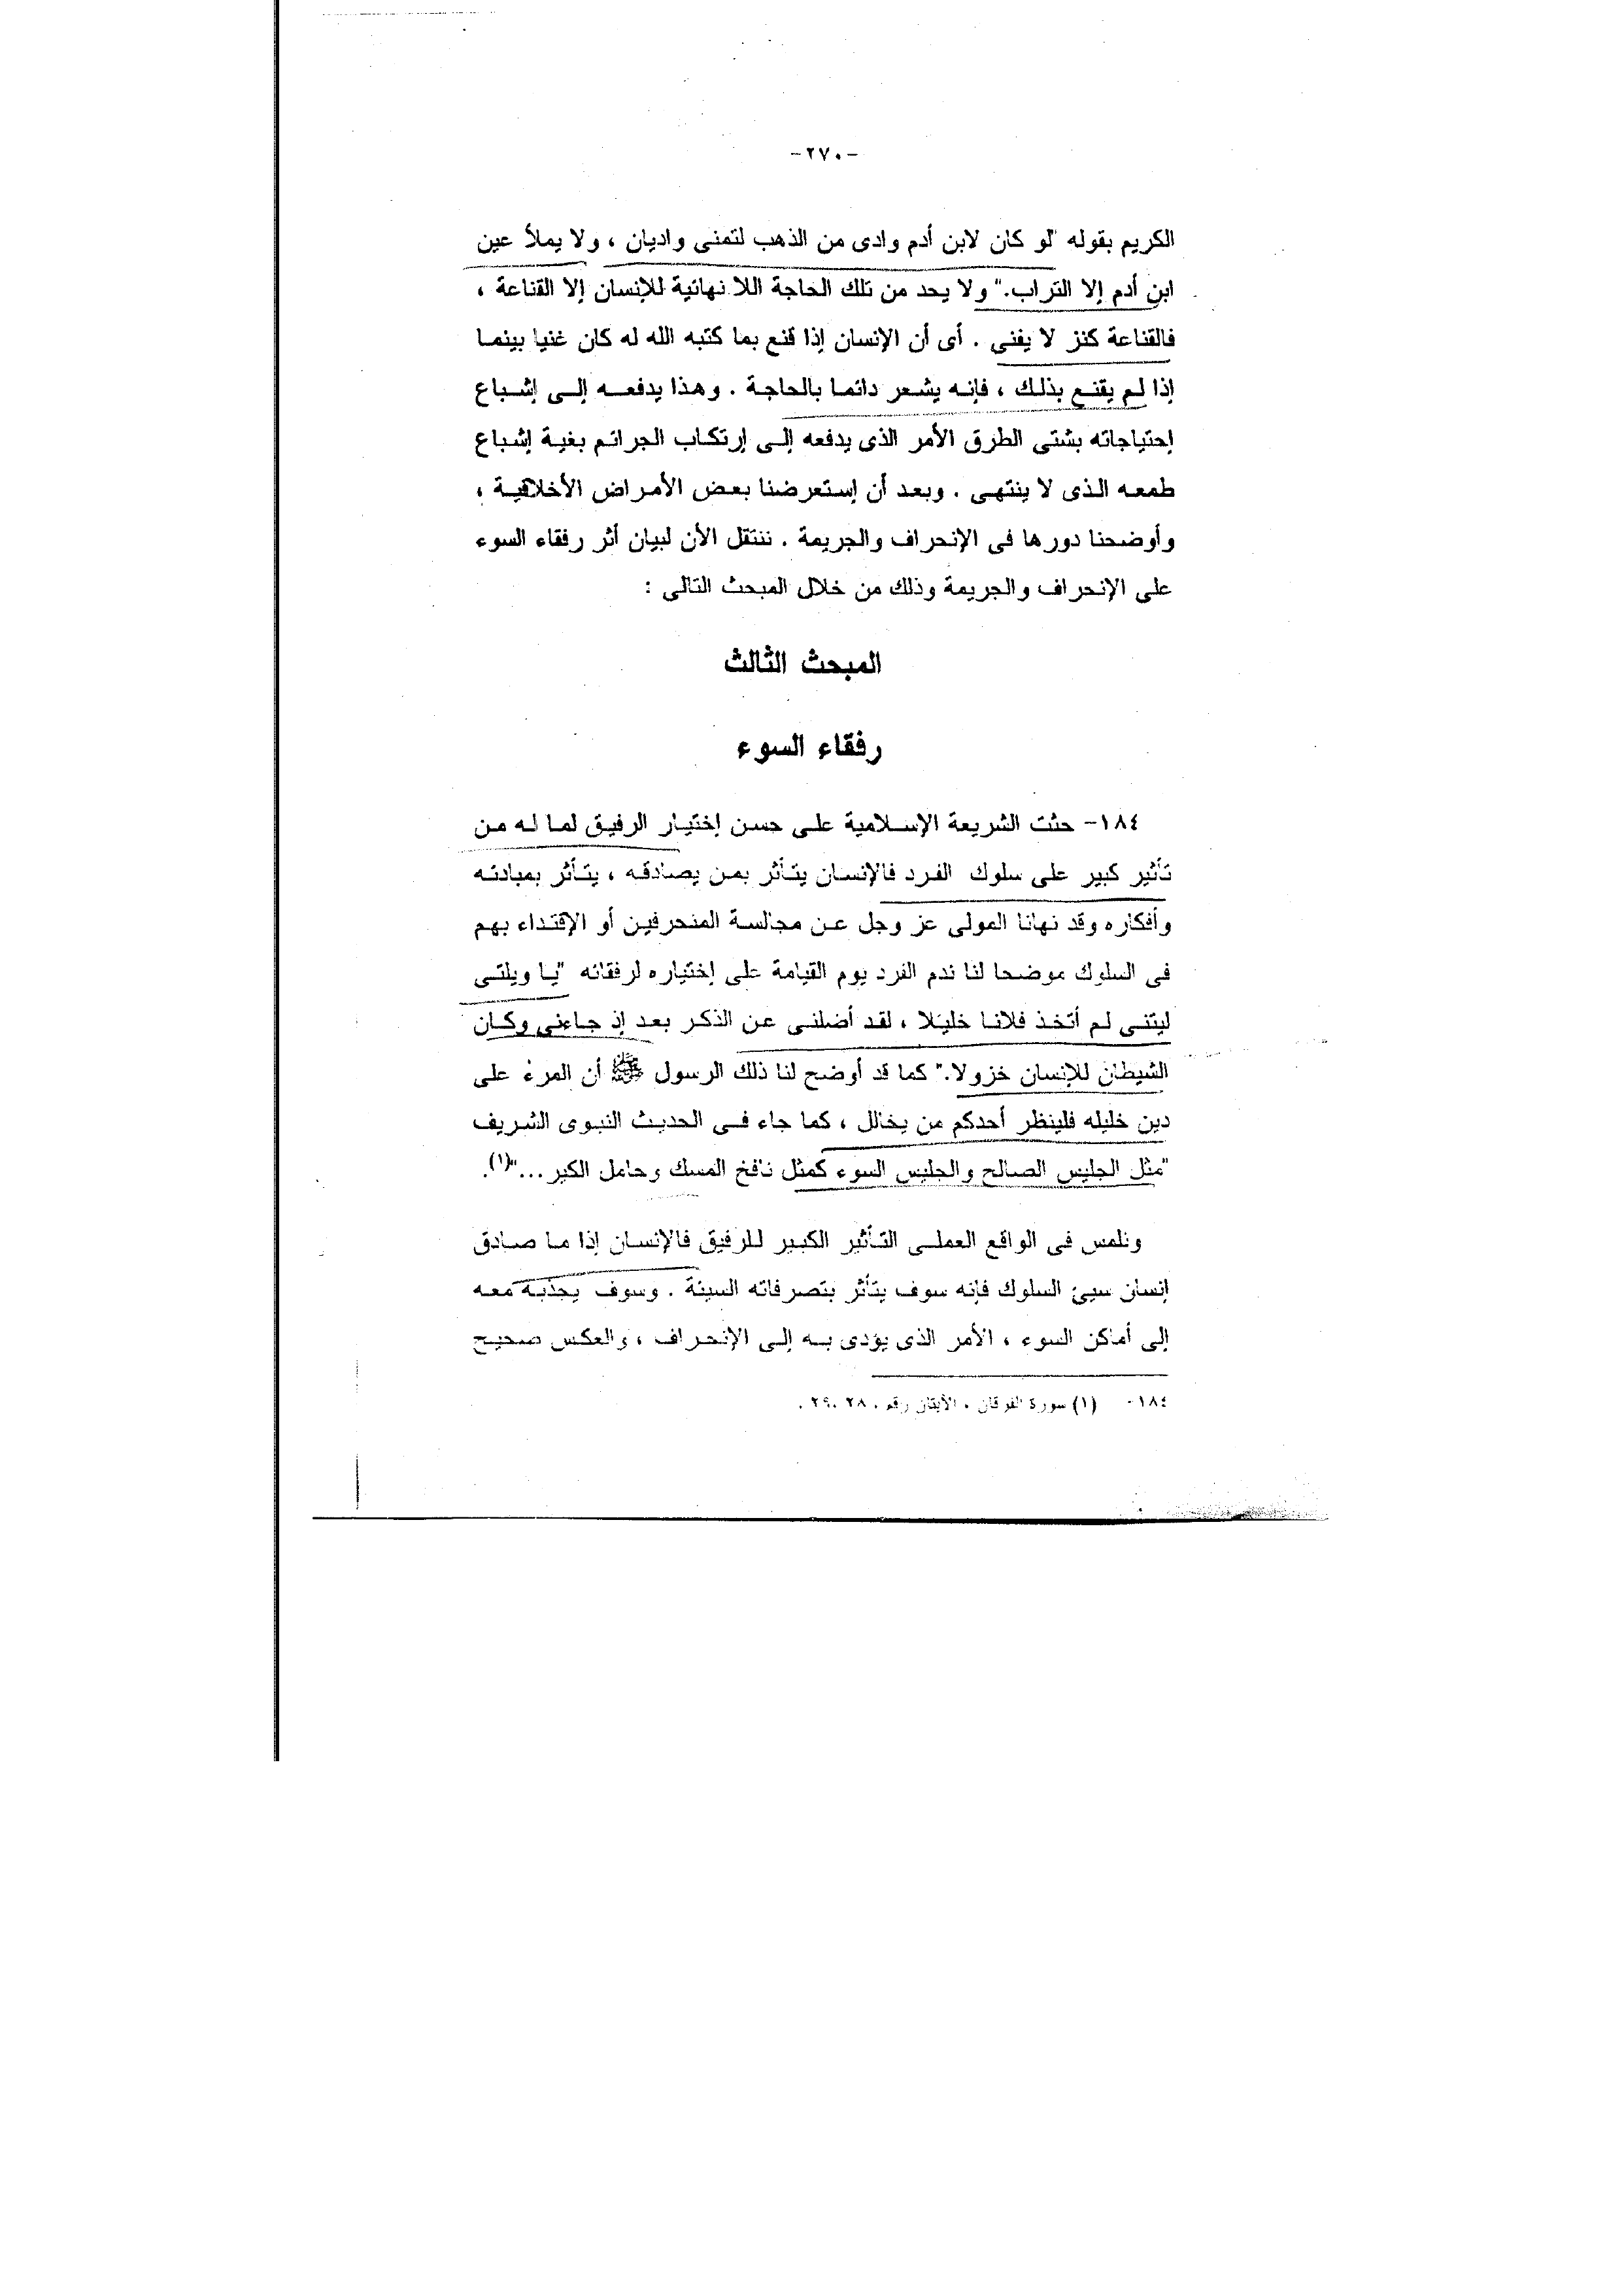 -٢٧٠-
الكريم بقوله "لو كان لابن أدم وادى من الذهب لتمنى واديان ، ولا يملأ عين
ابن أدم إلا التراب." ولا يحد من تلك الحاجة اللا نهائية للإنسان إلا القناعة ،
فالقناعة كنز لا يفنى . أى أن الإنسان إذا قنع بما كتبه الله له كان غنيا بينما
إذا لم يقنع بذلك ، فإنه يشعر دائما بالحاجة . وهذا يدفعه إلى إشباع
إحتياجاته بشتى الطرق الأمر الذى يدفعه إلى إرتكاب الجرائم بغية إشباع
طمعه الذى لا ينتهى . وبعد أن إستعرضنا بعض الأمراض الأخلاقية ،
وأوضحنا دورها فى الإنحراف والجريمة . ننتقل الأن لبيان أثر رفقاء السوء
على الإنحراف والجريمة وذلك من خلال المبحث التالى :
المبحث الثالث
رفقاء السوء
١٨٤- حثت الشريعة الإسلامية على حسن إختيار الرفيق لما له من
تأثير كبير على سلوك الفرد فالإنسان يتأثر بمن يصادقه ، يتأثر بمبادئه
وأفكاره وقد نهانا المولى عز وجل عن مجالسة المنحرفين أو الإقتداء بهم
فى السلوك موضحا لنا ندم الفرد يوم القيامة على إختياره لرفقائه "يا ويلتى
ليتنى لم أتخذ فلانا خليلا ، لقد أضلنى عن الذكر بعد إذ جاءنى وكان
الشيطان للإنسان خزولا." كما قد أوضح لنا ذلك الرسول ﷺ أن المرء على
دين خليله فلينظر أحدكم من يخالل ، كما جاء فى الحديث النبوى الشريف
"مثل الجليس الصالح والجليس السوء كمثل نافخ المسك وحامل الكير ..."(١).
ونلمس فى الواقع العملى التأثير الكبير للرفيق فالإنسان إذا ما صادق
إنسان سيئ السلوك فإنه سوف يتأثر بتصرفاته السيئة . وسوف يجذبة معه
إلى أماكن السوء ، الأمر الذى يؤدى به إلى الإنحراف ، والعكس صحيح
١٨٤- (١) سورة الفرقان ، الأيتان رقم ، ٢٨ ، ٢٩ .